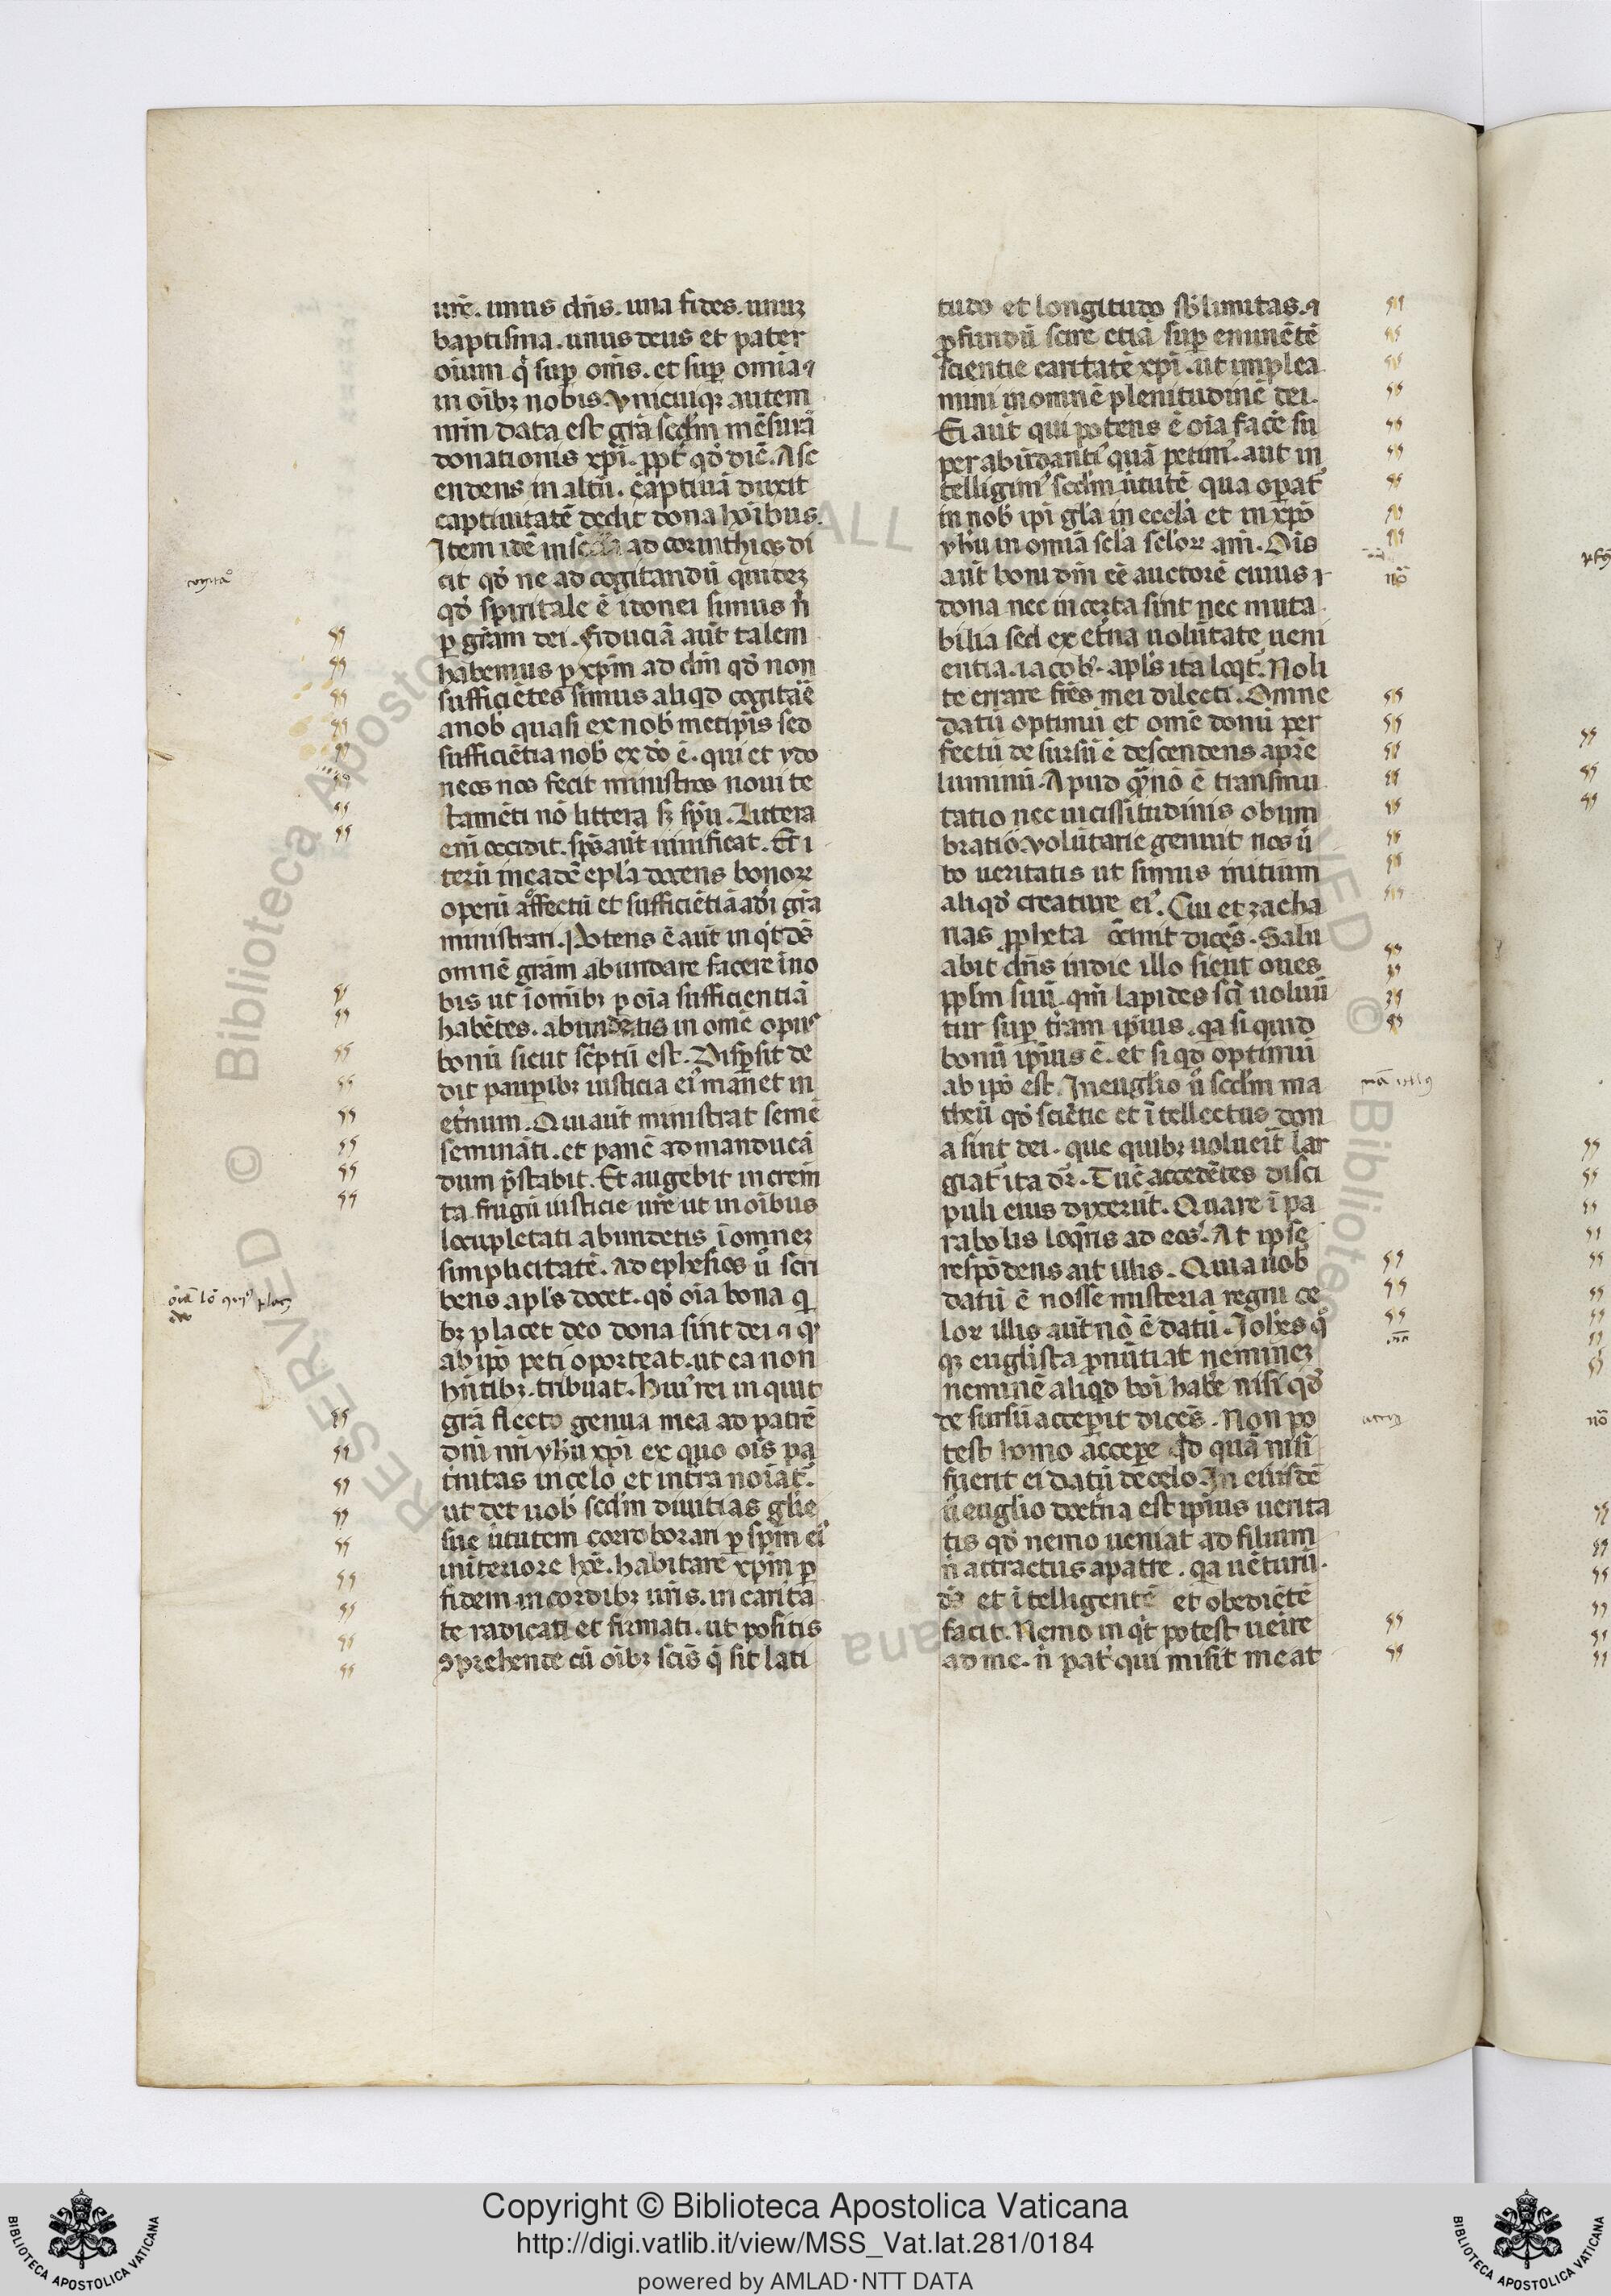 ur̄e. unus dn̄s. una fides. unuꝫ
baptisma. unus deus et pater
oīum q̇ suꝑ om̄s. et suꝑ omīa ⁊
in oībꝫ nobis. Vnicuiqꝫ autem
nr̄m data est gr̄a scd̄m mēsurā
donationis xp̄i. ꝓpt̄ qd̓ dic̄. Asc
endens in altū. captiuā duxit
captiuitatē dedit dona hōibus.
Item idē in scd̄a ad corinthios di
cit qd̓ ne ad cogitandū quideꝫ
qd̓ spiritale ē idonei simus n̄
ꝑ gr̄am dei. fiduciā aūt talem
habemus ꝑ xp̄m ad dm̄ qd̓ non
sufficiētes simus aliqd̓ cogitar̄e
a nob̄ quasi ex nob̄ metip̄is sed
sufficiētia nob̄ ex dō ē. qui et ydo
neos nos fecit ministros noui te
stamēti nō littera sꝫ sp̄u. Littera
eni̅ occidit. sp̄s aūt uiuificat. Et i
terū in eadē epl̄a docens bonoꝝ
operū affectū et sufficiētiā a dī gr̄a
ministrari. Potens ē aūt inq̇t dš
omnē gr̄am abundare facere ī uo
bis ut ī omībꝫ ꝑ oīa sufficientiā
habētes. abundetis in omē opus
bonū sicut scͥptū est. Disꝑsit de
dit pauꝑibꝫ iusticia eiꝰ manet in
et̄num. Qui aūt ministrat semē
semināti. et panē ad manducā
dum p̄stabit. Et augebit increm̄
ta frugū iusticie ur̄e ut in oībus
locupletati abundetis ī omneꝫ
simplicitatē. Ad ephesios ů scri
bens apl̄s docet. qd̓ oīa bona q
bꝫ placet deo dona sint dei ⁊ qꝰ
ab ipō peti oporteat. ut ea non
hn̄tibꝫ. tribuat. Huiꝰ rei inquit
gr̄a flecto genua mea ad patrē
dn̄i nr̄i yh̄u xp̄i ex quo oīs pa
t̄nitas in celo et in tra noīat̄.
ut det uob̄ scd̄m diuitias gl̄ie
sue ūtutem corroborari ꝑ sp̄m eiꝰ
interiore hōē. habitare xp̄m ꝑ
fidem in cordibꝫ ur̄is. in carita
te radicati et firmati. ut possitis
ꝯprehende cū oībꝫ scīs q̄ sit lati
tudo et longitudo sb̄limitas. ⁊
ꝓfundū scire etiā suꝑ eminētē
scientie caritatē xp̄i. ut implea
mini in omnē plenitudinē dei.
Ei aūt qui potens ē oīa facē su
per abūdantiꝰ quā petimꝰ. aut in
telligimꝰ scd̄m ūtutē qua oꝑat̄
in nob̄ ipi gl̄a in eccl̄a et in xpō
yh̄u in omīa scl̄a scl̄oꝝ am̄. Oīs
aūt boni dm̄ eē auctorē cuius ⁊
dona nec incerta sint nec muta
bilia sed ex et̄na uolūtate ueni
entia. iacobꝰ. apl̄s ita loq̇t̄. Noli
te errare fr̄es mei dilecti. Omne
datū optimū et omē donū per
fectū de sursū ē descendens a pr̄e
luminū. Apud quē nō ē transmu
tatio nec uicissitudinis obum
bratio. voluntarie genuit nos ů
bo ueritatis ut simus initium
aliqd̓ creature eiꝰ. Cui et zacha
rias ꝓpheta cō̄init dicēs. Salu
abit dn̄s in die illo sicut oues
pp̄lm suū. qm̄ lapides sc̄i uoluū
tur suꝑ t̄ram ipīus. qa si quid
bonū ipīus ē. et si qd̓ optimū
ab ipō est. In eug̅lio ů scd̄m ma
theū qd̓ sciētie et ītellectus don
a sint dei. que quibꝫ uolueīt lar
giat̄ ita dr̄. Tūc accedētes disci
puli eius dixerūt. Quare ī pa
rabolis loqr̄is ad eos. At ipse
respōdens ait illis. Quia uob̄
datū ē nosse misteria regni ce
loꝝ illis aūt nō ē datū. Ioh̄es q̊
qꝫ eug̅lista ꝓnūtiat nemineꝫ
neminē aliqd̓ boī habē nisi qd̓
de sursū acceꝑit dicēs. Non po
test homo acceꝑe q̇d quā nisi
fuerit ei datū de celo. In eiusdē
ů eug̅lio doct̄na est ipīus uerita
tis qd̓ nemo ueniat ad filium
n̄ attractus a patre. qa uēturū.
dō et ītelligentē et obediētē
facit. Nemo inq̇t potest ueīre
ad me. n̄ pat̄ qui misit me at